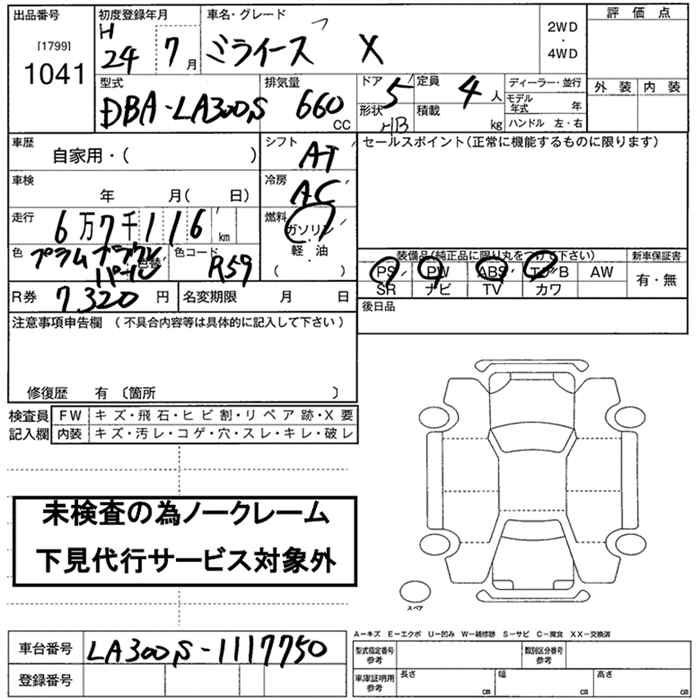 出品番号 初度登録年月 車名・グレード 評価点
[1799] H 24 7月 ミライース X 2WD・4WD
1041
型式 排気量 ドア 定員 ディーラー・並行 外装 内装
DBA-LA300S 660 CC 5 4人 モデル年式 年
形状 HB 積載 kg ハンドル 左・右
車歴 自家用・( ) シフト AT セールスポイント(正常に機能するものに限ります)
車検 年 月( 日) 冷房 AC
走行 6万7千116km 燃料 ガソリン
軽・油
( )
色 プラムブラウンパール 色替 色コード R59
装備品(純正品に限り丸をつけ下さい) 新車保証書
PS PW ABS エアB AW 有・無
SR ナビ TV カワ
R券 7,320円 名変期限 月 日 後日品
注意事項申告欄 (不具合内容等は具体的に記入して下さい)
修復歴 有 〔箇所 〕
検査員 FW キズ・飛石・ヒビ割・リペア跡・X要
記入欄 内装 キズ・汚レ・コゲ・穴・スレ・キレ・破レ
未検査の為ノークレーム
下見代行サービス対象外
スペア
A-キズ E-エクボ U-凹み W-補修跡 S-サビ C-腐食 XX-交換済
車台番号 LA300S-1117750 型式指定番号 参考 類別区分番号 参考
登録番号 車庫証明用 参考 長さ cm 幅 cm 高さ cm